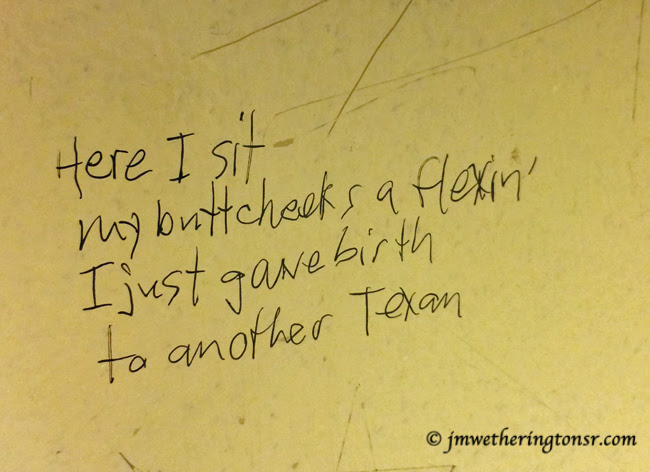 Here I sit
my buttcheeks a flexin'
I just gave birth
to another Texan
© jmwetheringtonsr.com